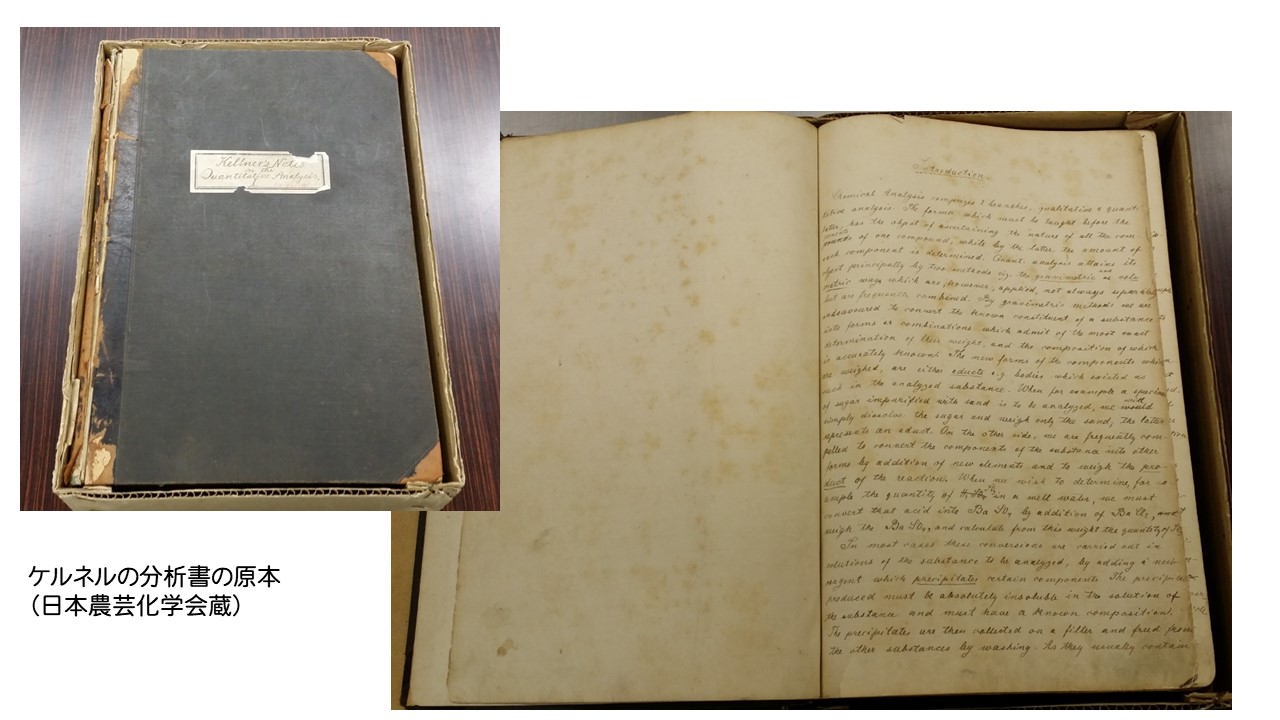 Kellner's Notes
on the
Quantitative Analysis,
ケルネルの分析書の原本
（日本農芸化学会蔵）
Introduction.
Chemical Analysis comprizes 2 branches, qualitative & quanti-
tative analysis. The former which must be taught before the
later, has the object of ascertaining the nature of all the com-
pounds of one compound, while by the later the amount of
each component is determined. Quant. analysis attains its
object principally by two methods viz. the gravimetric and volu-
metric ways which are, however, applied, not always separately
but are frequently combined. By gravimetric methods we are
endeavoured to convert the known constituent of a substance
into forms or combinations which admit of the most exact
determination of their weight, and the composition of which
is accurately known. The new forms of the components which
are weighed, are either educts e.g bodies which existed as
such in the analyzed substance. When for example a specimen
of sugar impurified with sand is to be analyzed, we would
simply dissolve the sugar and weigh only the sand; the latter
represents an educt. On the other side, we are frequently com-
pelled to convert the components of the substance into other
forms by addition of new elements and to weigh the pro-
duct of the reaction. When we wish to determine, for ex
ample the quantity of in a well water, we must
convert that acid into Ba SO4 by addition of Ba Cl2, and
weigh the Ba SO4, and calculate from this weight the quantity of
In most cases these conversions are carried out in
solutions of the substance to be analyzed, by adding a new
reagent which precipitates certain components. The precipitate
produced must be absolutely insoluble in the solution of
the substance and must have a known composition.
The precipitates are then collected on a filter and freed from
the other substances by washing. As they usually contain